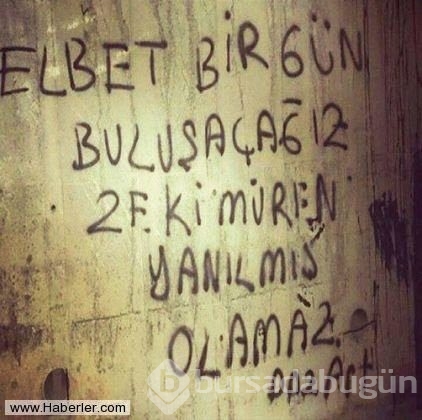 ELBET BİR GÜN
BULUŞAÇAĞIZ
ZEKİ MÜREN
YANILMIŞ
OLAMAZ
bursadabugün
www.Haberler.com